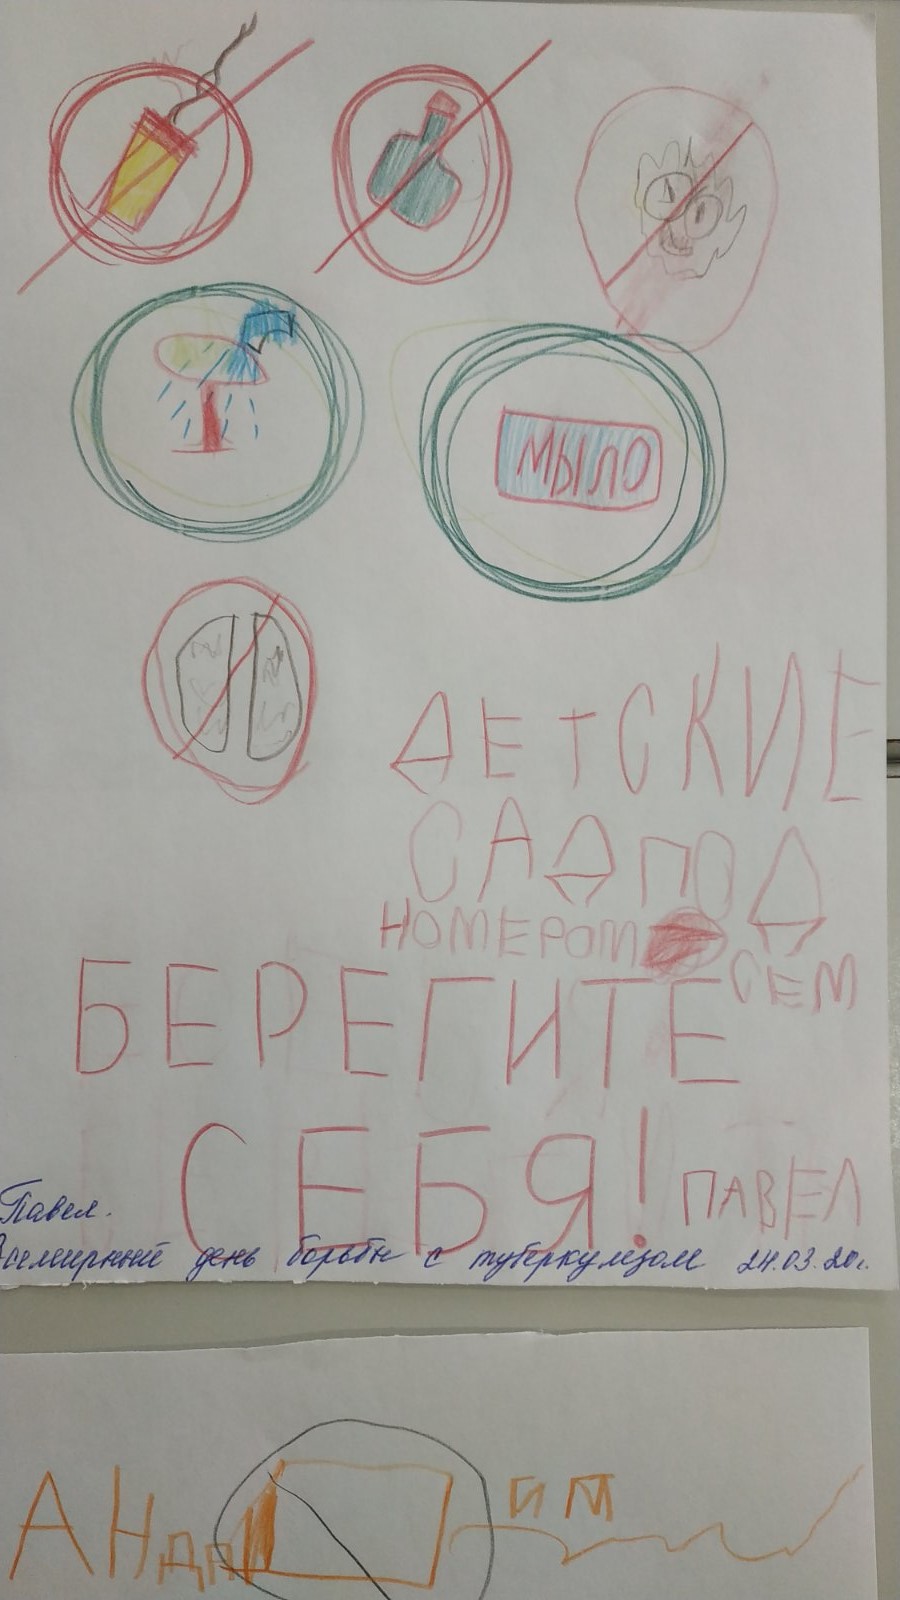 МЫЛО
ДЕТСКИЕ
САД ПОД
НОМЕРОМ
СЕМ
БЕРЕГИТЕ
СЕБЯ!
ПАВЕЛ
Павел.
Всемирный день борьбы с туберкулезом 24.03.20г.